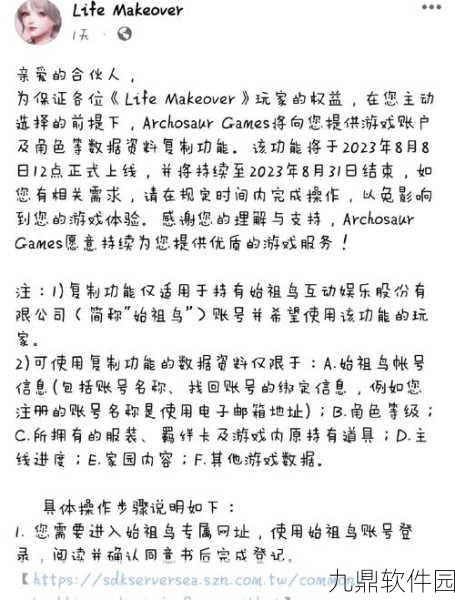 Life Makeover
1天
亲爱的合伙人，
为保证各位《Life Makeover》玩家的权益，在您主动
选择的前提下，Archosaur Games将向您提供游戏账户
及角色等数据资料复制功能。该功能将于2023年8月8
日12点正式上线，并将持续至2023年8月31日结束，如
您有相关需求，请在规定时间内完成操作，以免影响
到您的游戏体验。感谢您的理解与支持，Archosaur
Games愿意持续为您提供优质的游戏服务！
注：1)复制功能仅适用于持有始祖鸟互动娱乐股份有
限公司（简称"始祖鸟"）账号并希望使用该功能的玩
家。
2)可使用复制功能的数据资料仅限于：A.始祖鸟帐号
信息(包括账号名称、找回账号的绑定信息，例如您
注册的账号名称是使用电子邮箱地址)；B.角色等级；
C.所拥有的服装、羁绊卡及游戏内原持有道具；D.主
线进度；E.家园内容；F.其他游戏数据。
具体操作步骤说明如下：
1. 您需要进入始祖鸟专属网址，使用始祖鸟账号登
录，阅读并确认同意书后完成登记。
【https://sdkserversea.szn.com.tw/common/
九鼎软件园